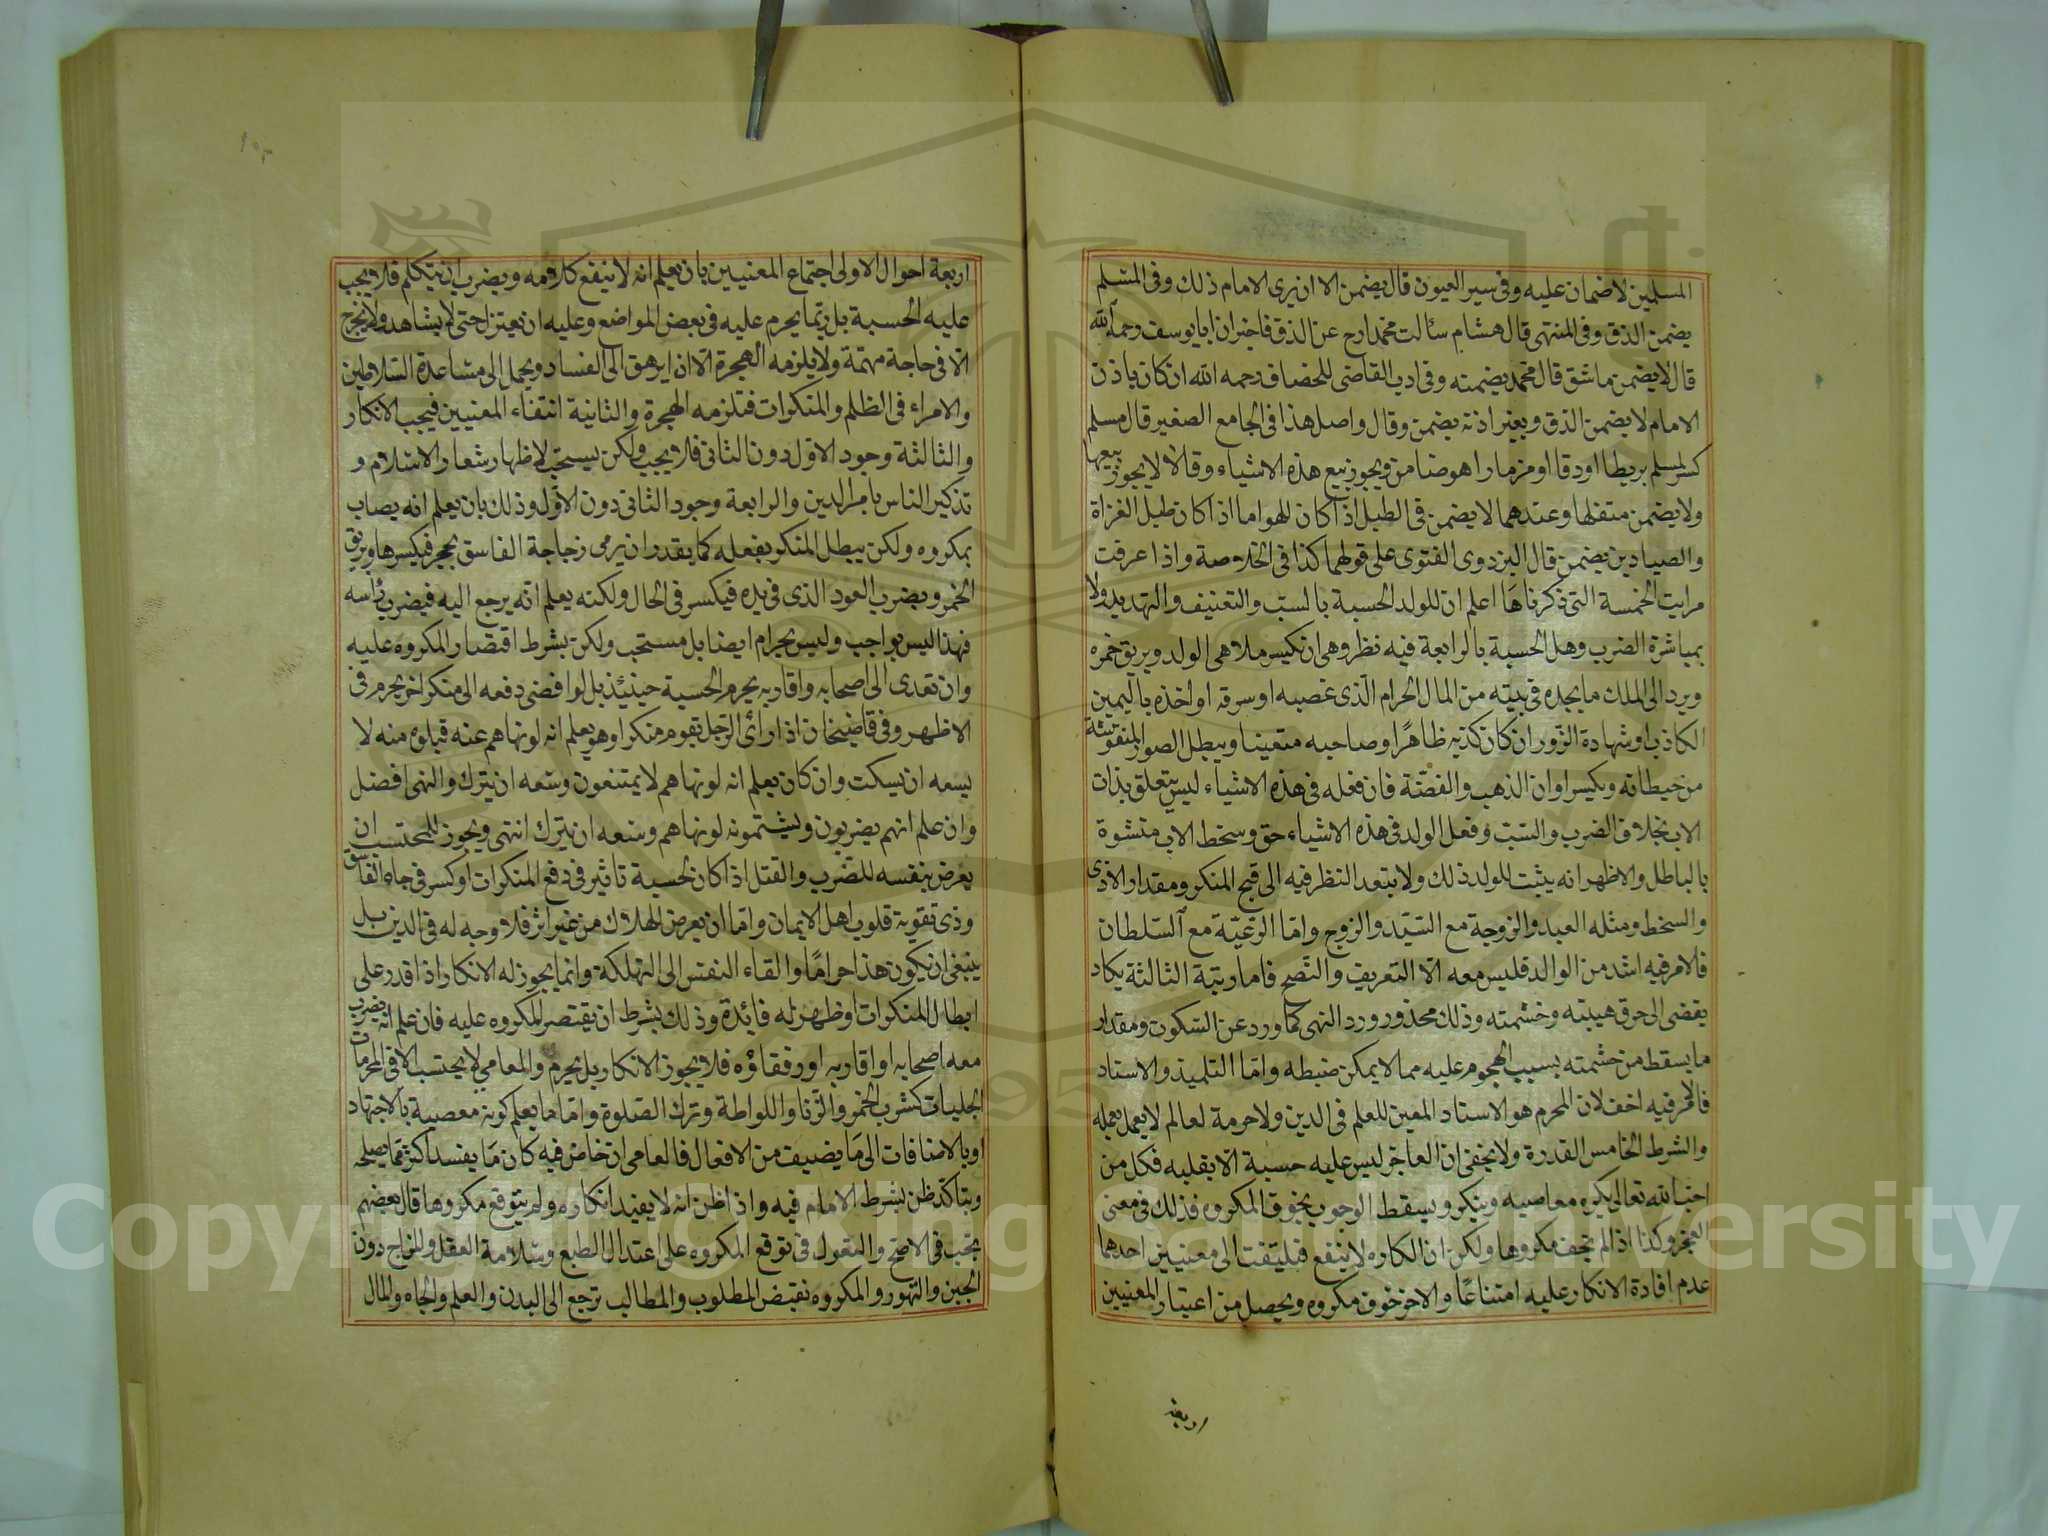 المسلمين لا ضمان عليه وفى سير العيون قال يضمن الا ان يرى الامام ذلك وفى المسلم
يضمن الدق وفى المنتهى قال هشام سئالت محمدا رح عن الدق فاخبر ان ابا يوسف رحمه الله
قال لا يضمن ما شق قال محمد يضمنه وفى ادب القاضى للخصاف رحمه الله ان كان باذن
الامام لا يضمن الدق وبغير اذنه يضمن وقال واصل هذا فى الجامع الصغير قال مسلم
كسر لمسلم بربطا اودقا او مزمارا هو ضامن ويجوز بيع هذه الاشياء وقالا لا يجوز بيعها
ولا يضمن متفلها وعندهما لا يضمن فى الطبل اذا كان للهو اما اذا كان طبل الغزاة
والصيادين يضمن قال البزدوى الفتوى على قولهما كذا فى الخلاصة واذا عرفت
مرايت الخمسة التى ذكرناها اعلم ان للولد الحسبة بالسب والتعنيف والتهديد ولا
بمباشرة الضرب وهل الحسبة بالرابعة فيه نظر وهى ان نكيس ملاهى الولد ويريق خمره
ويرد الى الملك ما يجده فى بيته من المال الحرام الذى غصبه او سرقه او اخذه باليمين
الكاذب او شهادة الزور ان كان كذبه ظاهرًا وصاحبه متعينا ويبطل الصور المنقوشة
من خيطانه ويكسر اوان الذهب والفضة فان فعله فى هذه الاشياء ليس يتعلق بذات
الاب بخلاف الضرب والسب وفعل الولد فى هذه الاشياء حق وسخط الاب منشوة
بالباطل والاظهر انه يثبت للولد ذلك ولا بتعد النظر فيه الى قبح المنكر ومقدار الاذى
والسخط ومثله العبد والزوجة مع السيد والزوج واما الرعية مع السلطان
فالامر فيه اشد من الوالد فليس معه الا التعريف والنصح فاما رتبة الثالثة يكاد
يقضى الى حرق هيبته وخشمته وذلك محذور ورد النهى كما ورد عن السكوت ومقدار
ما يسقط من حشمته بسبب الهجوم عليه مما لا يمكن ضبطه واما التلميذ والاستاد
فالامر فيه اخف لان المحرم هو الاستاد المعين للعلم فى الدين ولا حرمة لعالم لا يعمل بعمله
والشرط الخامس القدرة ولا يخفى ان العاجز ليس عليه حسبة الا بقلبه فكل من
احب الله تعالى يكره معاصيه وينكر ويسقط الوجوب بخوف المكروه فذلك فى معنى
العجز وكذا اذا لم يخف مكروها ولكن ان الكاره لا ينفع فيلتفت الى معنيين احدهما
عدم افادة الانكار عليه امتناعًا والاخر خوف مكروه ويحصل من اعتبار المعنيين
اربعة
اربعة احوال الاولى اجتماع المعنيين بان يعلم انه لا ينفع كلامه ويضرب ان يتكلم فلا يجب
عليه الحسبة بل ربما يحرم عليه فى بعض المواضع وعليه ان يعتزل حتى لا يشاهد ولا يخرج
الا فى حاجة مهمة ولا يلزمه الهجرة الا ان ايرهق الى الفساد ويحمل الى مشاعدة السلاطين
والامراء فى الظلم والمنكرات فتلزمه الهجرة والثانية انتفاء المعنيين فيجب الانكار
والثالثة وجود الاول دون الثانى فلا يجب ولكن يستحب لاظهار شعار الاسلام و
تذكير الناس بامر الدين والرابعة وجود الثانى دون الاول وذلك بان يعلم انه يصاب
بمكروه ولكن يبطل المنكر بفعله كما يقدر ان يرمى زجاجة الفاسق بحجر فيكسرها ويريق
الخمر ويضرب العود الذى فى يده فيكسر فى الحال ولكنه يعلم انه يرجع اليه فيضرب رأسه
فهذا ليس بواجب وليس بحرام ايضا بل مستحب ولكن بشرط اقتصار المكروه عليه
وان تعدى الى اصحابه واقاربه يحرم الحسبة حينئذ بل لو افضى دفعه الى منكر اخر يحرم فى
الاظهر وفى قاضيخان اذا رأى الرجل بقوم منكرا وهو يعلم انه لو نهاهم عنه قبلوه منه لا
يسعه ان يسكت وان كان يعلم انه لو نهاهم لا يمتنعون وسعه ان يترك والنهى افضل
وان علم انهم يضربون ويشتمونه لو نهاهم وسعه ان يترك انتهى ويجوز للمحتسب ان
يعرض بنفسه للضرب والقتل اذا كان لحسبة تاثير فى دفع المنكرات او كسر فى جاه الفاسق
وذى تقوية قلوب اهل الايمان واما ان يعرض لهلاك من غير اثر فلا وجه له فى الدين بل
ينبغى ان يكون هذا حرامًا والقاء النفس الى التهلكة وانما يجوز له الانكار اذا قدر على
ابطال المنكرات او ظهر له فائدة وذلك بشرط ان يقتصر المكروه عليه فان علم انه يضرب
معه اصحابه او اقاربه او رفقاؤه فلا يجوز الانكار بل يحرم والمعامى لا يحتسب الا فى المحرمات
الجليات كشرب الخمر والزنا واللواطة وترك الصلوة واما ما يعلم كونه معصية بالاجتهاد
او بالاضافات الى ما يضيف من الافعال فالعامى ان خاض فيه كان ما يفسد اكثر مما يصلحه
ويتاكد ظن بشرط الامام فيه واذا ظن انه لا يفيد انكاره ولم يتوقع مكروها قال بعضهم
يجب فى الاصح والمقول فى توقع المكروه على اعتدال الطبع وسلامة العقل والمزاج دون
الجبن والتهور والمكروه نقيض المطلوب والمطالب ترجع الى البدن والعلم والجاه والمال
Copyright © King Saud University